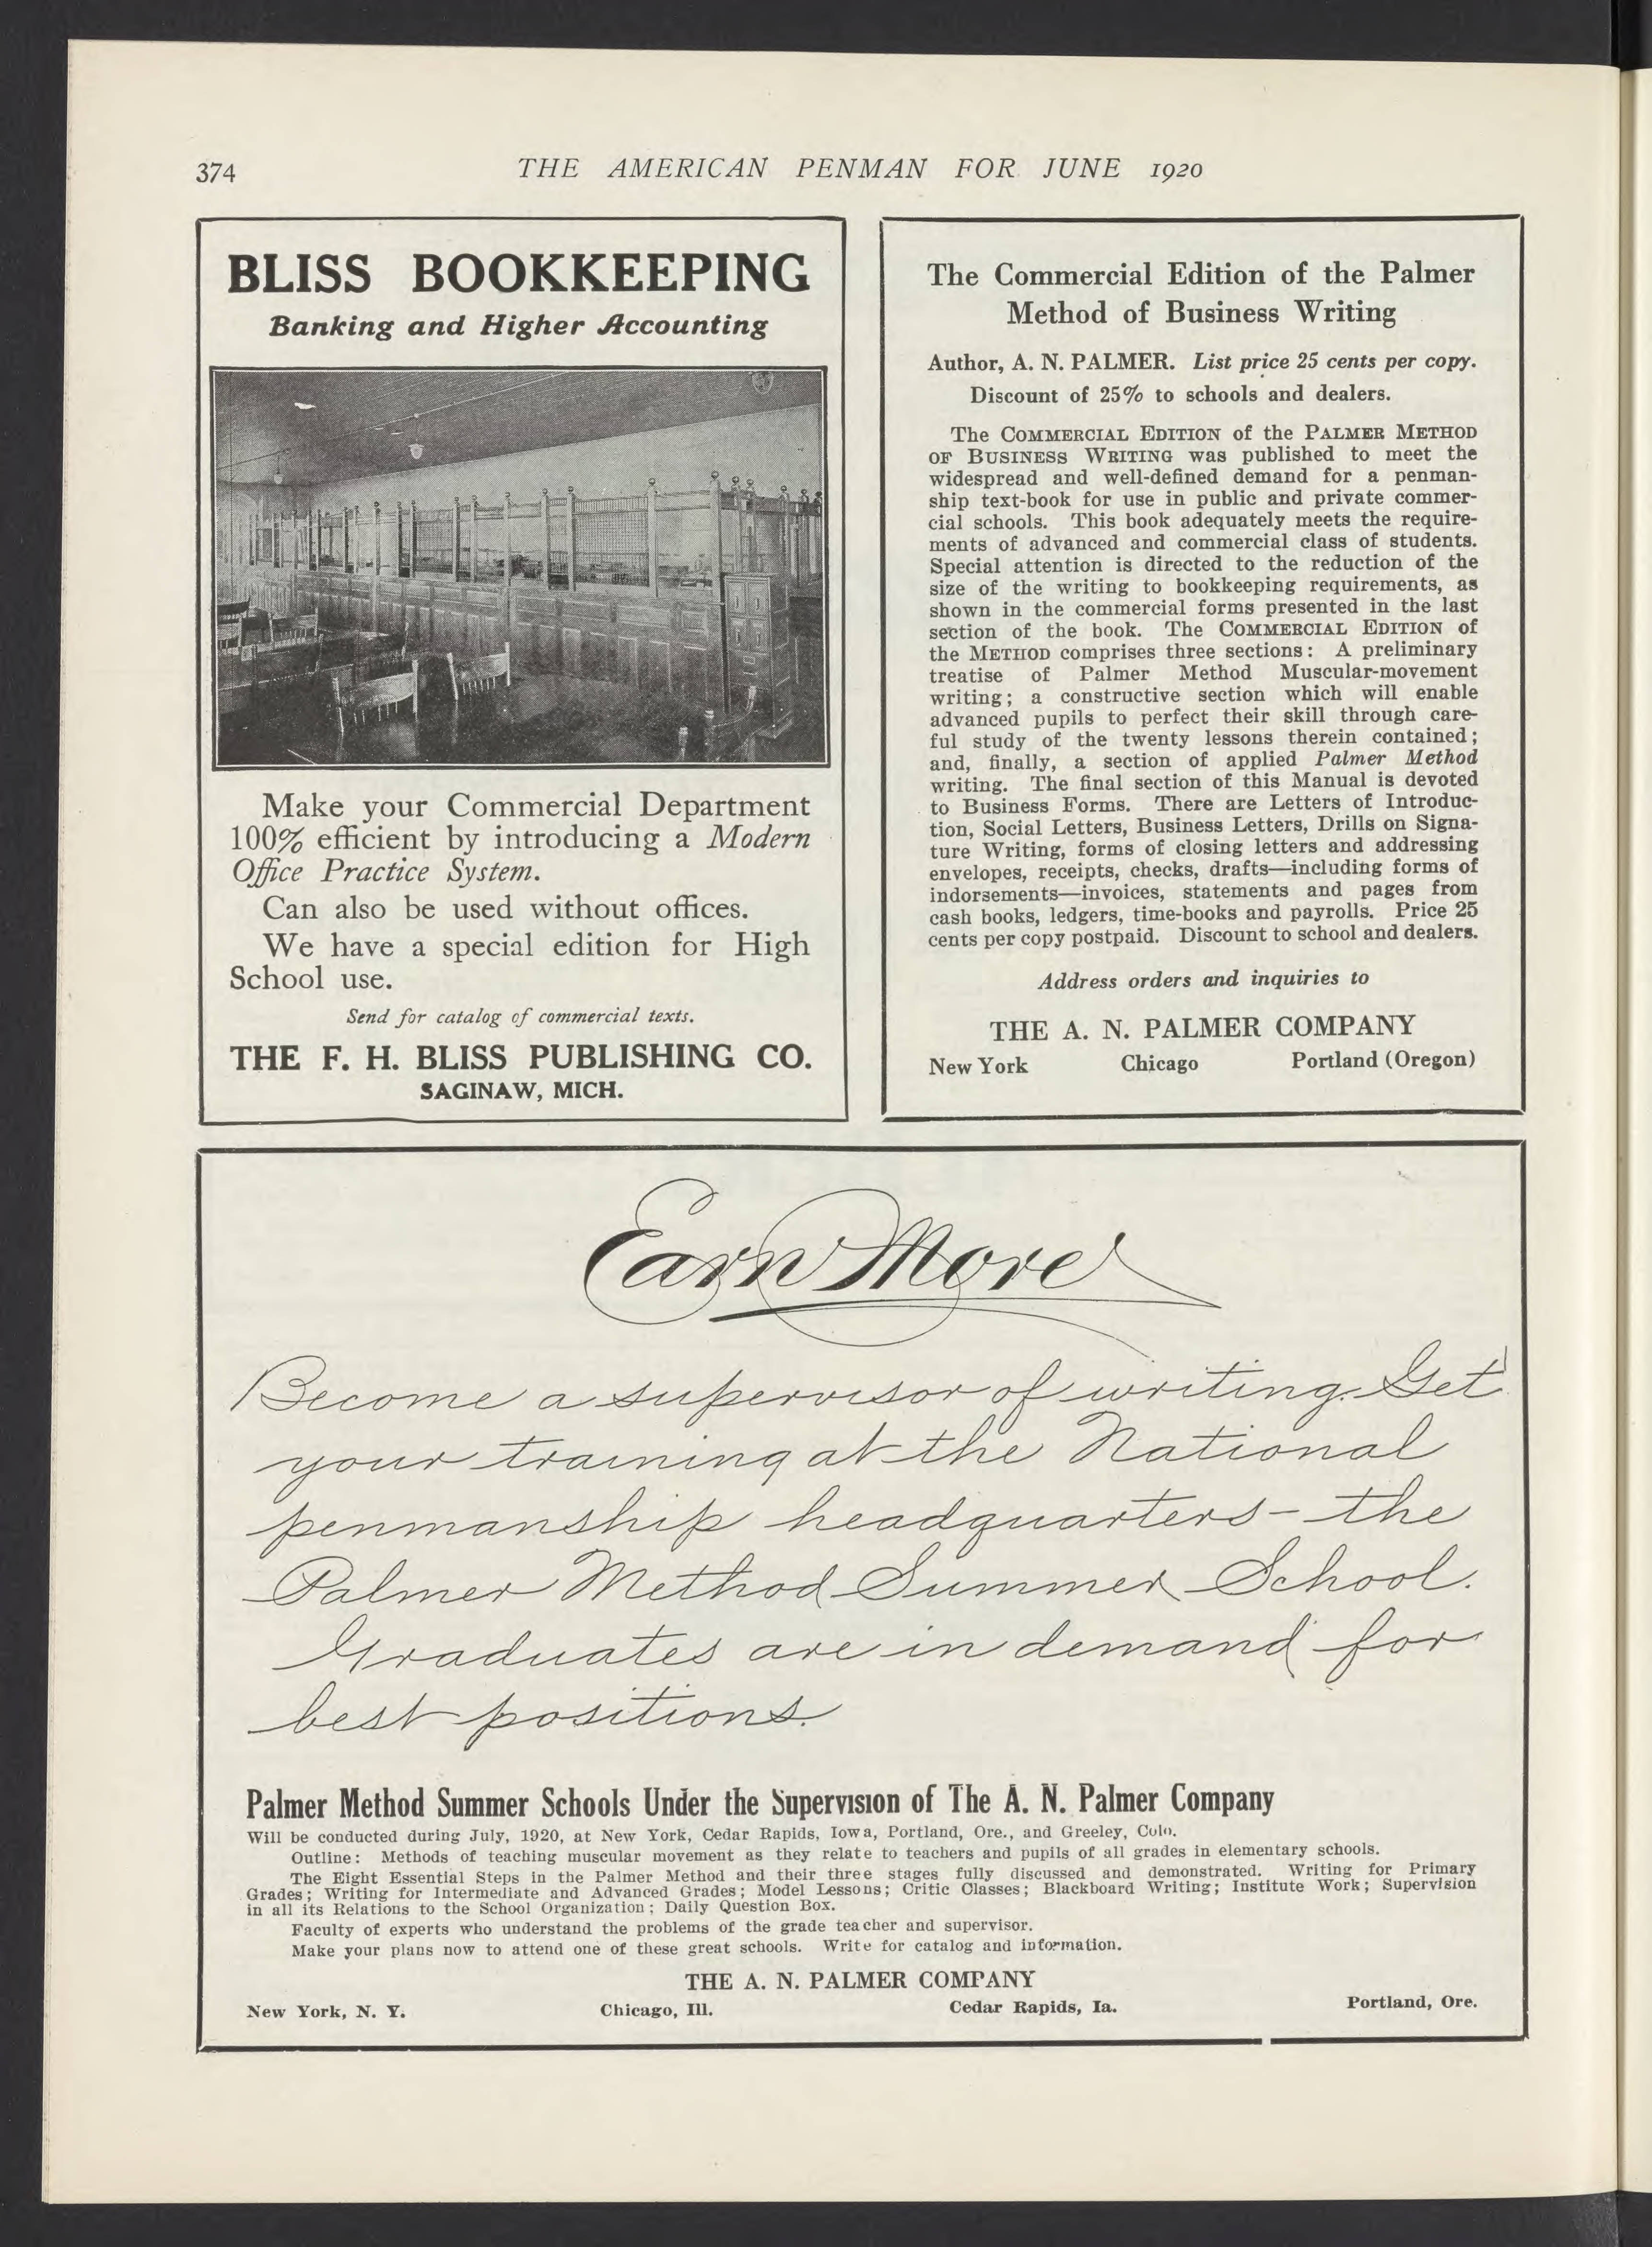 374
THE AMERICAN PENMAN FOR JUNE 1920
BLISS BOOKKEEPING
Banking and Higher Accounting
Make your Commercial Department
100% efficient by introducing a Modern
Office Practice System.
Can also be used without offices.
We have a special edition for High
School use.
Send for catalog of commercial texts.
THE F. H. BLISS PUBLISHING CO.
SAGINAW, MICH.
The Commercial Edition of the Palmer
Method of Business Writing
Author, A. N. PALMER. List price 25 cents per copy.
Discount of 25% to schools and dealers.
The COMMERCIAL EDITION of the PALMER METHOD
OF BUSINESS WRITING was published to meet the
widespread and well-defined demand for a penman-
ship text-book for use in public and private commer-
cial schools. This book adequately meets the require-
ments of advanced and commercial class of students.
Special attention is directed to the reduction of the
size of the writing to bookkeeping requirements, as
shown in the commercial forms presented in the last
section of the book. The COMMERCIAL EDITION of
the METHOD comprises three sections: A preliminary
treatise of Palmer Method Muscular-movement
writing; a constructive section which will enable
advanced pupils to perfect their skill through care-
ful study of the twenty lessons therein contained;
and, finally, a section of applied Palmer Method
writing. The final section of this Manual is devoted
to Business Forms. There are Letters of Introduc-
tion, Social Letters, Business Letters, Drills on Signa-
ture Writing, forms of closing letters and addressing
envelopes, receipts, checks, drafts—including forms of
indorsements—invoices, statements and pages from
cash books, ledgers, time-books and payrolls. Price 25
cents per copy postpaid. Discount to school and dealers.
Address orders and inquiries to
THE A. N. PALMER COMPANY
New York Chicago Portland (Oregon)
Earn More
Become a supervisor of writing. Get
your training at the National
penmanship headquarters - the
Palmer Method Summer School.
Graduates are in demand for
best positions.
Palmer Method Summer Schools Under the Supervision of The A. N. Palmer Company
Will be conducted during July, 1920, at New York, Cedar Rapids, Iowa, Portland, Ore., and Greeley, Colo.
Outline: Methods of teaching muscular movement as they relate to teachers and pupils of all grades in elementary schools.
The Eight Essential Steps in the Palmer Method and their three stages fully discussed and demonstrated. Writing for Primary
Grades; Writing for Intermediate and Advanced Grades; Model Lessons; Critic Classes; Blackboard Writing; Institute Work; Supervision
in all its Relations to the School Organization; Daily Question Box.
Faculty of experts who understand the problems of the grade teacher and supervisor.
Make your plans now to attend one of these great schools. Write for catalog and information.
THE A. N. PALMER COMPANY
New York, N. Y. Chicago, Ill. Cedar Rapids, Ia. Portland, Ore.